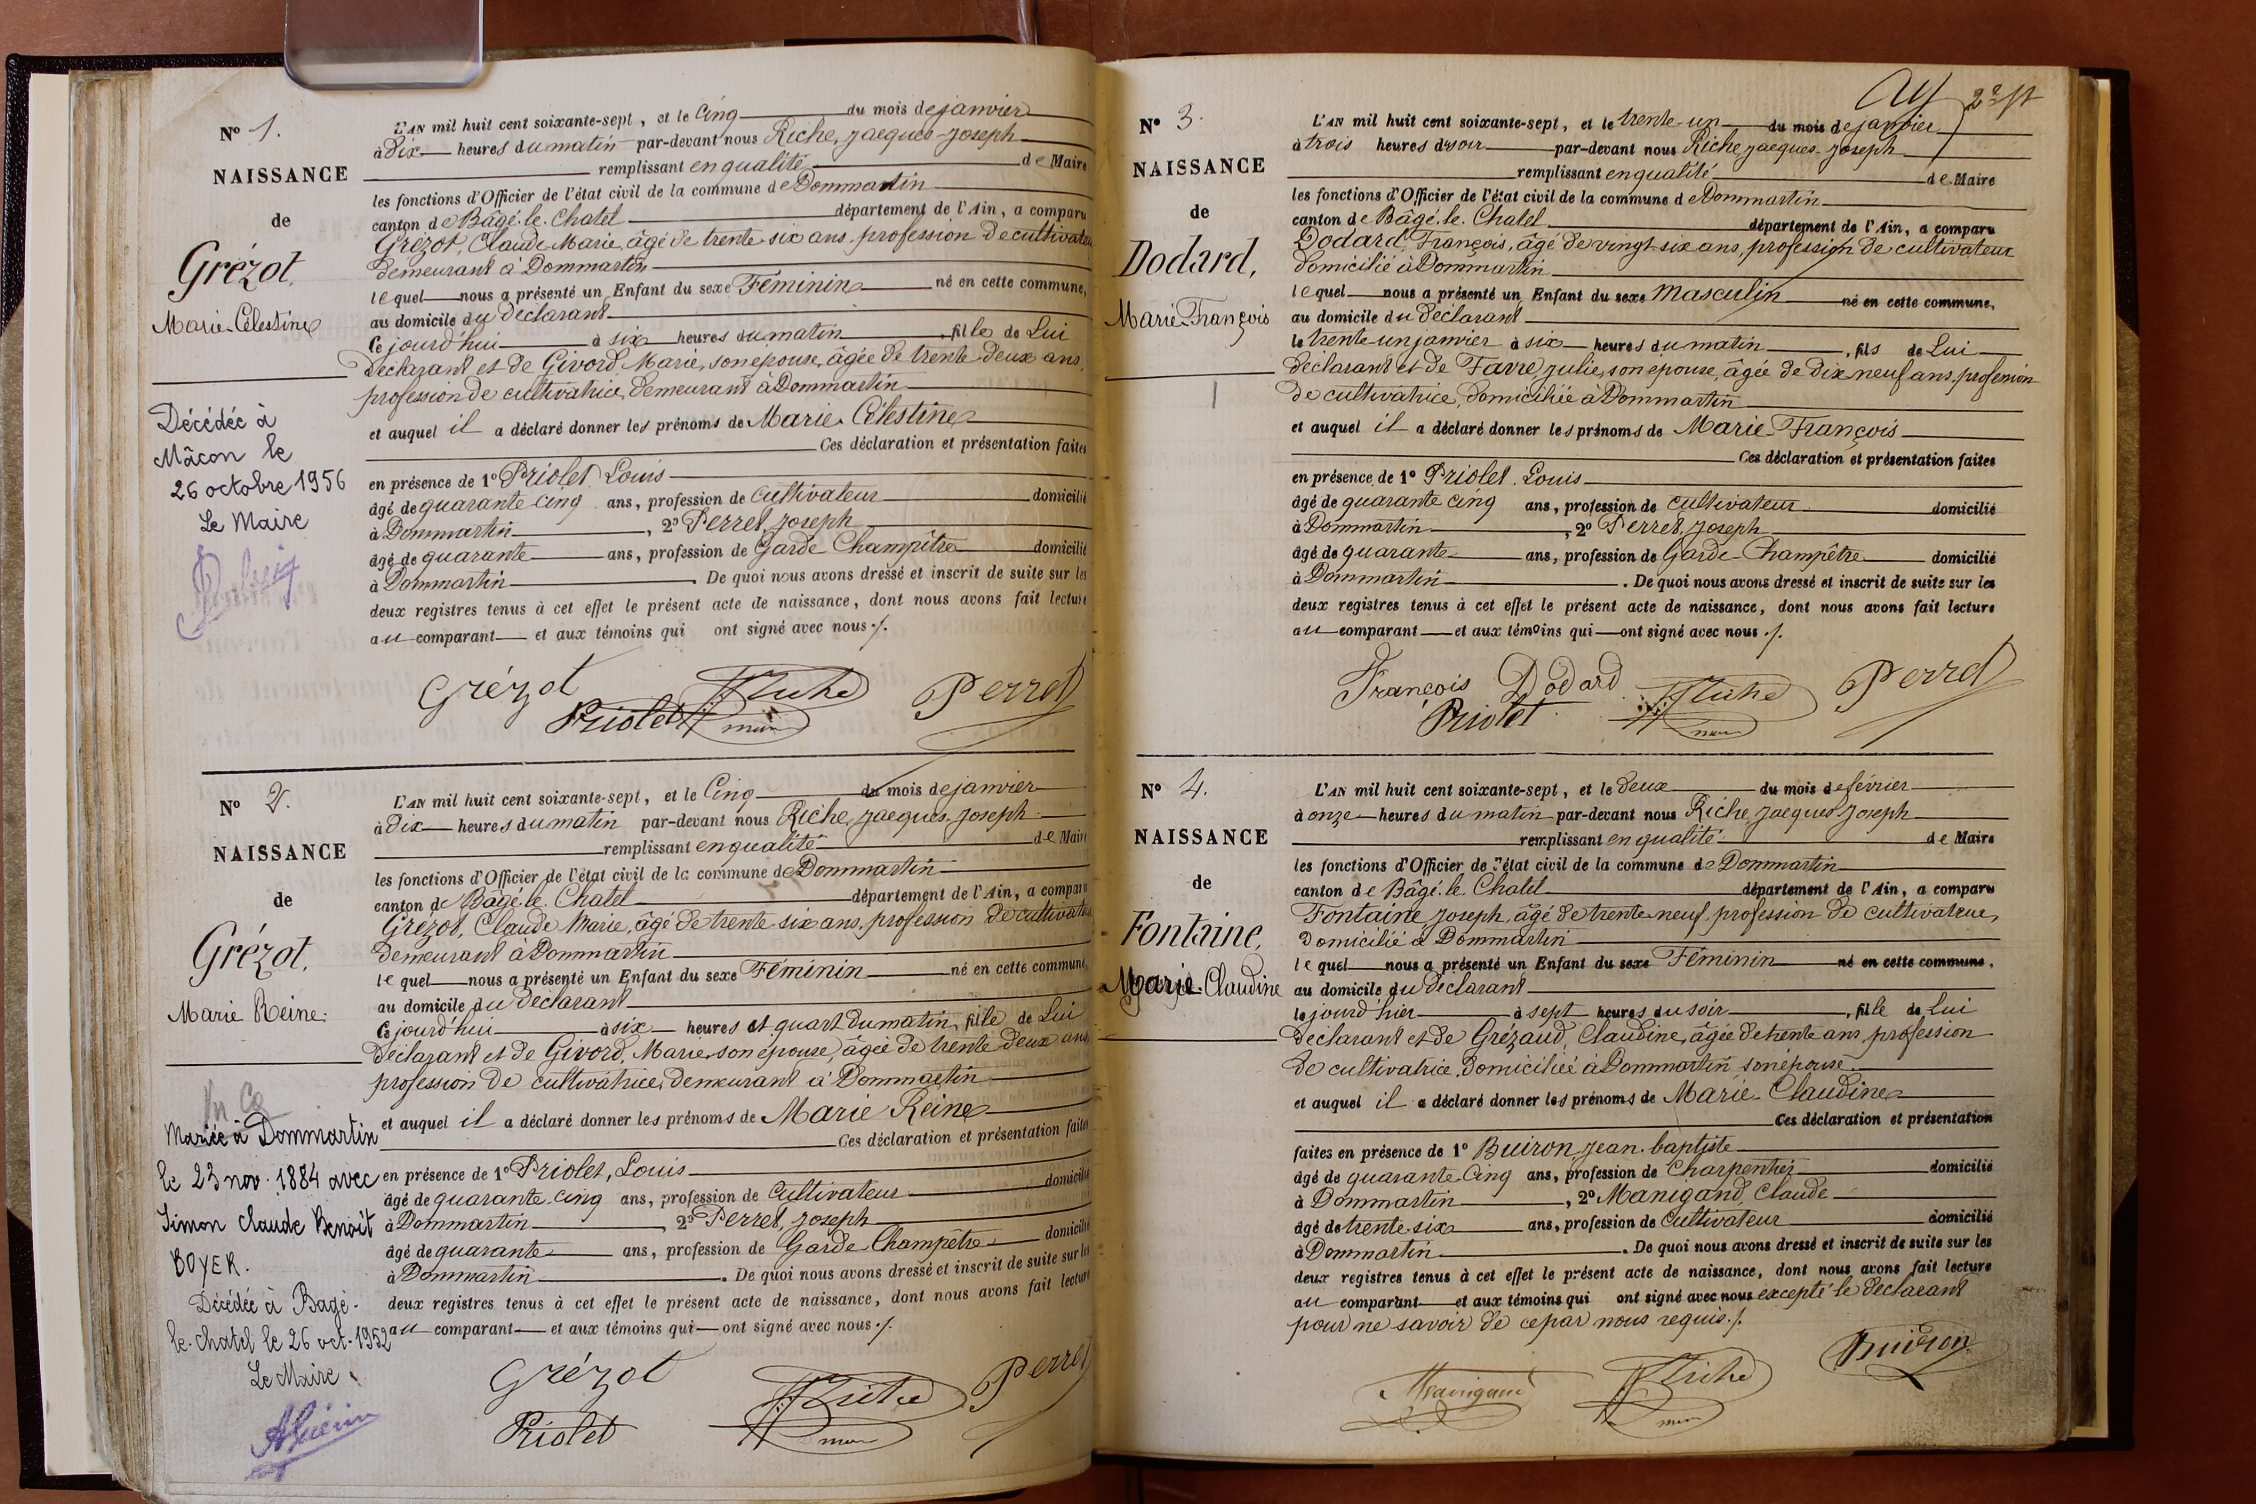 Nº 1.
NAISSANCE
de
Grézot,
Marie-Célestine
Décédée à
Mâcon le
26 octobre 1956
Le Maire
L'AN mil huit cent soixante-sept, et le Cinq du mois de janvier
à dix heures du matin par-devant nous Riche, Jacques-Joseph
remplissant en qualité de Maire
les fonctions d'Officier de l'état civil de la commune de Dommartin
canton de Bâgé-le-Chatel département de l'Ain, a comparu
Grézot, Claude Marie, âgé de trente six ans, profession de cultivateur
demeurant à Dommartin
lequel nous a présenté un Enfant du sexe Féminin né en cette commune,
au domicile du déclarant
Ce jourd'hui à six heures du matin, fille de Lui
déclarant et de Givord, Marie, son épouse, âgée de trente deux ans,
profession de cultivatrice, demeurant à Dommartin
et auquel il a déclaré donner les prénoms de Marie-Célestine
Ces déclaration et présentation faites
en présence de 1º Priolet, Louis
âgé de quarante cinq ans, profession de cultivateur domicilié
à Dommartin, 2º Perret, Joseph
âgé de quarante ans, profession de Garde-Champêtre domicilié
à Dommartin. De quoi nous avons dressé et inscrit de suite sur les
deux registres tenus à cet effet le présent acte de naissance, dont nous avons fait lecture
au comparant et aux témoins qui ont signé avec nous ./.
Grézot Riche Perret
Priolet maire
Nº 2.
NAISSANCE
de
Grézot,
Marie Reine.
Mariée à Dommartin
le 23 nov. 1884 avec
Simon Claude Benoît
BOYER.
Décédée à Bagé-
le-chatel le 26 oct. 1952
Le Maire
L'AN mil huit cent soixante-sept, et le Cinq du mois de janvier
à dix heures du matin par-devant nous Riche, Jacques-Joseph
remplissant en qualité de Maire
les fonctions d'Officier de l'état civil de la commune de Dommartin
canton de Bâgé-le-Chatel département de l'Ain, a comparu
Grézot, Claude Marie, âgé de trente-six ans, profession de cultivateur
demeurant à Dommartin
lequel nous a présenté un Enfant du sexe Féminin né en cette commune,
au domicile du déclarant
Ce jourd'hui à six heures et quart du matin, fille de Lui
déclarant et de Givord, Marie, son épouse, âgée de trente deux ans,
profession de cultivatrice, demeurant à Dommartin
et auquel il a déclaré donner les prénoms de Marie Reine
Ces déclaration et présentation faites
en présence de 1º Priolet, Louis
âgé de quarante cinq ans, profession de Cultivateur domicilié
à Dommartin, 2º Perret, Joseph
âgé de quarante ans, profession de Garde-Champêtre domicilié
à Dommartin. De quoi nous avons dressé et inscrit de suite sur les
deux registres tenus à cet effet le présent acte de naissance, dont nous avons fait lecture
au comparant et aux témoins qui ont signé avec nous ./.
Grézot Riche Perret
Priolet maire
Nº 3.
NAISSANCE
de
Dodard,
Marie-François
L'AN mil huit cent soixante-sept, et le trente-un du mois de janvier
à trois heures du soir par-devant nous Riche, Jacques-Joseph
remplissant en qualité de Maire
les fonctions d'Officier de l'état civil de la commune de Dommartin
canton de Bâgé-le-Chatel département de l'Ain, a comparu
Dodard, François, âgé de vingt-six ans, profession de cultivateur
domicilié à Dommartin
lequel nous a présenté un Enfant du sexe Masculin né en cette commune,
au domicile du déclarant
le trente-un janvier à six heures du matin, fils de Lui
déclarant et de Favre, Julie, son épouse, âgée de dix neuf ans, profession
de cultivatrice, domiciliée à Dommartin
et auquel il a déclaré donner les prénoms de Marie-François
Ces déclaration et présentation faites
en présence de 1º Priolet, Louis
âgé de quarante cinq ans, profession de cultivateur domicilié
à Dommartin, 2º Perret, Joseph
âgé de quarante ans, profession de Garde-Champêtre domicilié
à Dommartin. De quoi nous avons dressé et inscrit de suite sur les
deux registres tenus à cet effet le présent acte de naissance, dont nous avons fait lecture
au comparant et aux témoins qui ont signé avec nous ./.
François Dodard Riche Perret
Priolet maire
Nº 4.
NAISSANCE
de
Fontaine,
Marie-Claudine
L'AN mil huit cent soixante-sept, et le deux du mois de février
à onze heures du matin par-devant nous Riche, Jacques Joseph
remplissant en qualité de Maire
les fonctions d'Officier de l'état civil de la commune de Dommartin
canton de Bâgé-le-Chatel département de l'Ain, a comparu
Fontaine Joseph, âgé de trente-neuf, profession de cultivateur,
domicilié à Dommartin
lequel nous a présenté un Enfant du sexe Féminin né en cette commune,
au domicile du déclarant
le jourd'hier à sept heures du soir, fille de Lui
déclarant et de Grézaud, Claudine, âgée de trente ans, profession
de cultivatrice, domiciliée à Dommartin, son épouse.
et auquel il a déclaré donner les prénoms de Marie-Claudine
Ces déclaration et présentation
faites en présence de 1º Buiron, Jean-baptiste
âgé de quarante-Cinq ans, profession de Charpentier domicilié
à Dommartin, 2º Manigand, Claude
âgé de trente-six ans, profession de cultivateur domicilié
à Dommartin. De quoi nous avons dressé et inscrit de suite sur les
deux registres tenus à cet effet le présent acte de naissance, dont nous avons fait lecture
au comparant et aux témoins qui ont signé avec nous excepté le déclarant
pour ne savoir de ce par nous requis ./.
Buiron
Manigand Riche
maire